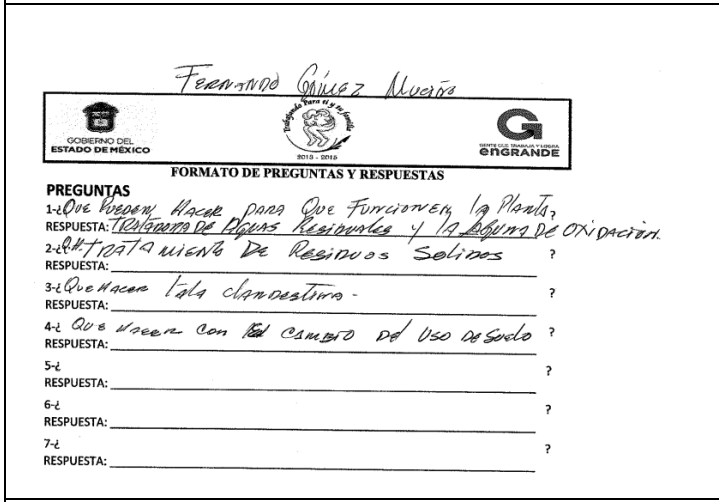 Fernando Gómez Muciño
Trabajando Para ti y tu familia
GOBIERNO DEL
ESTADO DE MÉXICO
2013 - 2015
GENTE QUE TRABAJA Y LOGRA
enGRANDE
FORMATO DE PREGUNTAS Y RESPUESTAS
PREGUNTAS
1-¿Que Pueden Hacer para Que Funcionen la Planta?
RESPUESTA: Tratadora De Aguas Residuales y la Laguna DE OXiDACiÓN.
2-¿ TRATAMiENTO De Residuos Solidos ?
RESPUESTA:
3-¿Que Hacer Tala clandestina - ?
RESPUESTA:
4-¿ Que Hacer Con El CAMBIO Del Uso De Suelo ?
RESPUESTA:
5-¿ ?
RESPUESTA:
6-¿ ?
RESPUESTA:
7-¿ ?
RESPUESTA: